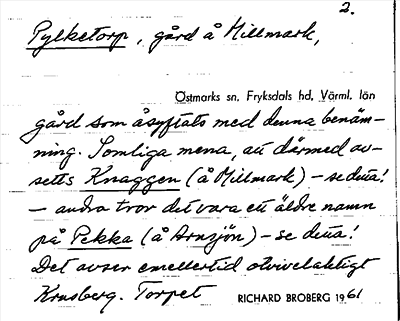 2.
Pylketorp, gård å Millmark,
Östmarks sn. Fryksdals hd, Värml. län
gård som åsyftats med denna benäm-
ning. Somliga mena, att därmed av-
setts Knaggen (å Millmark) – se detta!
– andra tror det vara ett äldre namn
på Pekka (å Arnsjön) – se detta!
Det avser emellertid otvivelaktigt
Kronsberg. Torpet
RICHARD BROBERG 1961